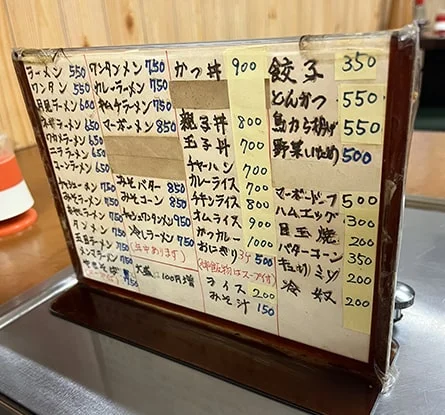 ラーメン 550
ワンタン 550
月見ラーメン 600
みそラーメン 650
ワカメラーメン 650
ニララーメン 650
コーンラーメン 650
チャシューメン 750
タンメン 750
五目ラーメン 750
メンマラーメン 750
ワンタンメン 750
カレーラーメン 750
キムチラーメン 750
マーボーメン 850
みそバター 850
みそコーン 850
チャシュワンタンメン 950
冷しラーメン 750
(年中あります)
大盛 100円増
かつ丼 900
親子丼 800
玉子丼 700
チャーハン 700
カレーライス 700
チキンライス 800
オムライス 900
カツカレー 1000
おにぎり 3ケ 500
(御飯物はスープ付)
ライス 200
みそ汁 150
餃子 350
とんかつ 550
鳥から揚げ 550
野菜いため 500
マーボードーフ 500
ハムエッグ 300
目玉焼 200
バターコーン 350
キュウリ 200
冷奴 200